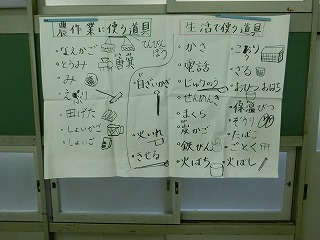 農作業に使う道具
・なえかご
・とうみ 唐箕
てんびんぼう
・み
・えぶり
・田げた
・しょいかご
・しょいこ
・自ざいかぎ
・火いれ
・きせる
生活で使う道具
・かさ
・電話
・じゅうのう
・せんめんき
・まくら
・炭かご
・鉄かん
・火ばち
・こおり
・ざる
・おひつ おはち
・保温びつ
・ぞうり
・たばこ
・ごとく
・火ばし